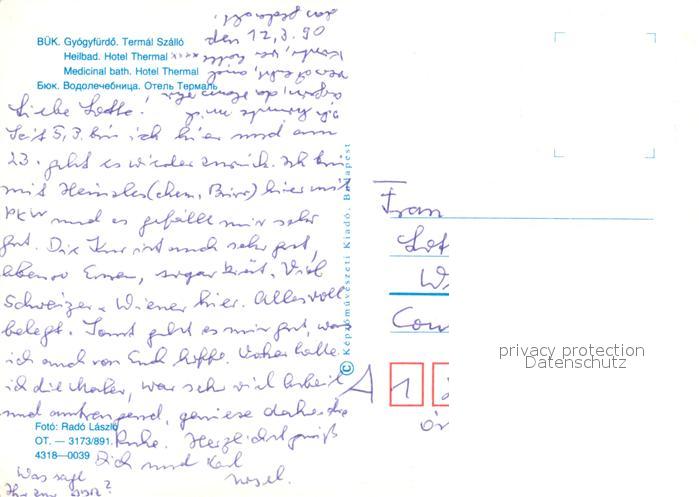 BÜK. Gyógyfürdő. Termál Szálló
Heilbad. Hotel Thermal
Medicinal bath. Hotel Thermal
Бюк. Водолечебница. Отель Термаль
den 12,3.90
Liebe Lotte!
Seit 5,3. bin ich hier und am
23. geht es wieder zurück. Ich bin
mit Heinzles (chem, Büro) hier mit
PKW und es gefällt mir sehr
gut. Die Kur ist auch sehr gut,
ebenso Essen, sogar Diät. Viel
Schweizer u. Wiener hier. Alles voll
belegt. Sonst geht es mir gut, was
ich auch von Euch hoffe. Vorher hatte
ich die Maler, war sehr viel Arbeit
und anstrengend, geniese daher die
Ruhe. Herzlichst grüßt
Dich und Karl
Was sagt
Ihr zur DDR?
Fotó: Radó László
OT. — 3173/891.
4318—0039
© Képzőművészeti Kiadó, Budapest
Frau
Lot
W
A 1
privacy protection
Datenschutz